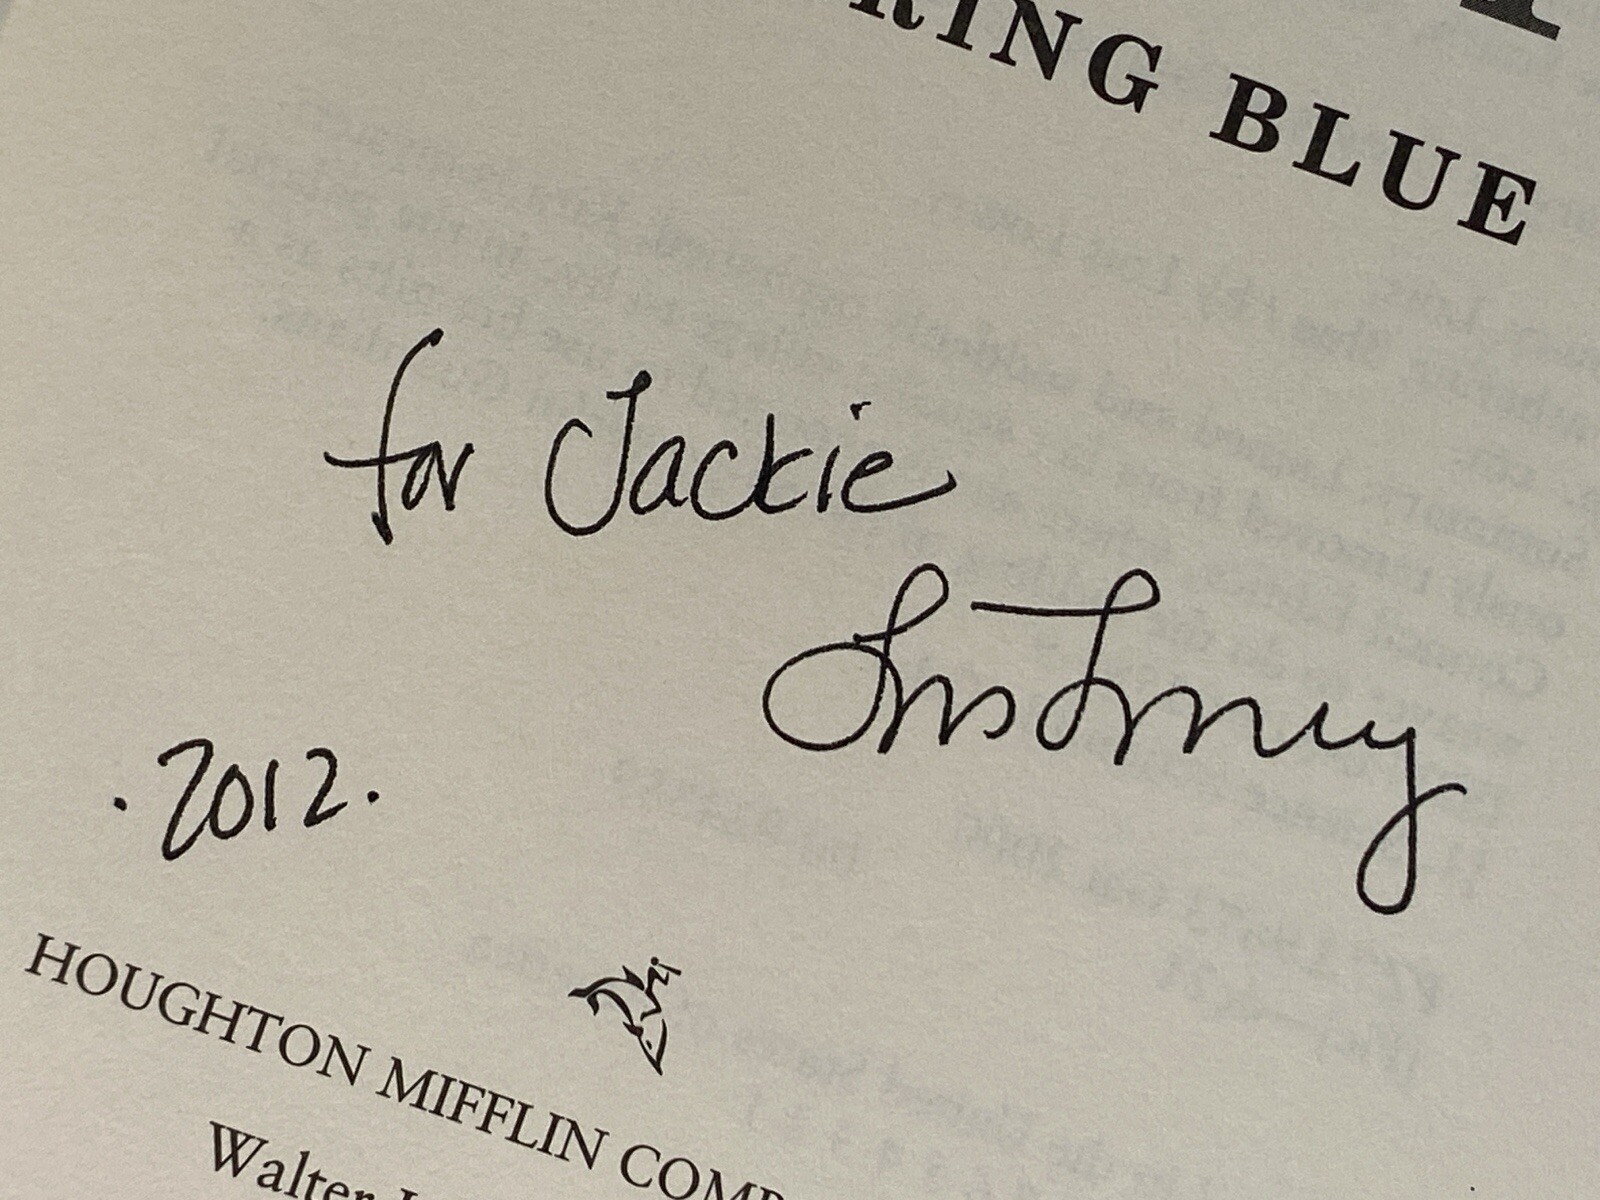 RING BLUE
for Jackie
Lois Lowry
. 2012.
HOUGHTON MIFFLIN COMP
Walter L